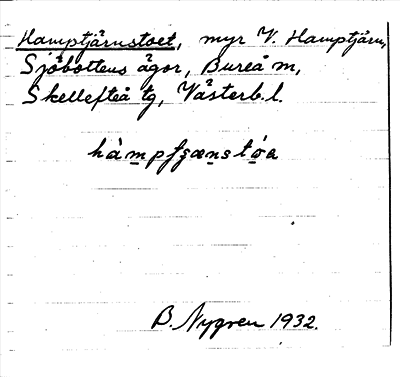 Hamptjärnstoet, myr V. Hamptjärn,
Sjöbottens ägor, Bureå m,
Skellefteå tg, Västerb. l.
B. Nygren 1932.